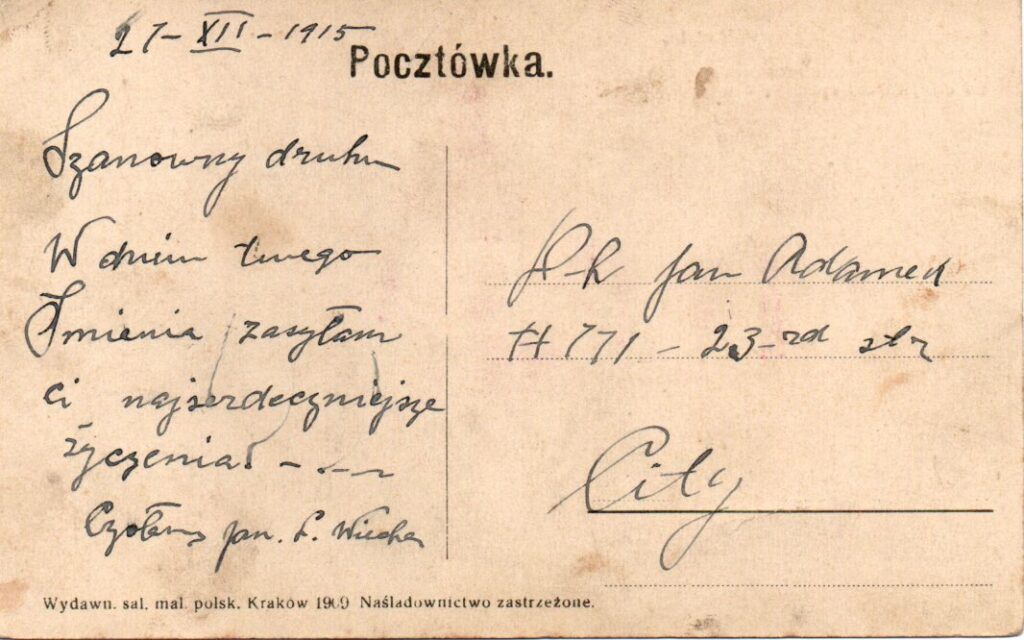 27-XII-1915
Pocztówka.
Szanowny druhu
W dniu twego
Imienia zasyłam
ci najserdeczniejsze
życzenia! - - -
Czołem Jan. S. Wiecha
Jan Adamek
# 771 - 23-rd str
City
Wydawn. sal. mal. polsk. Kraków 1909 Naśladownictwo zastrzeżone.